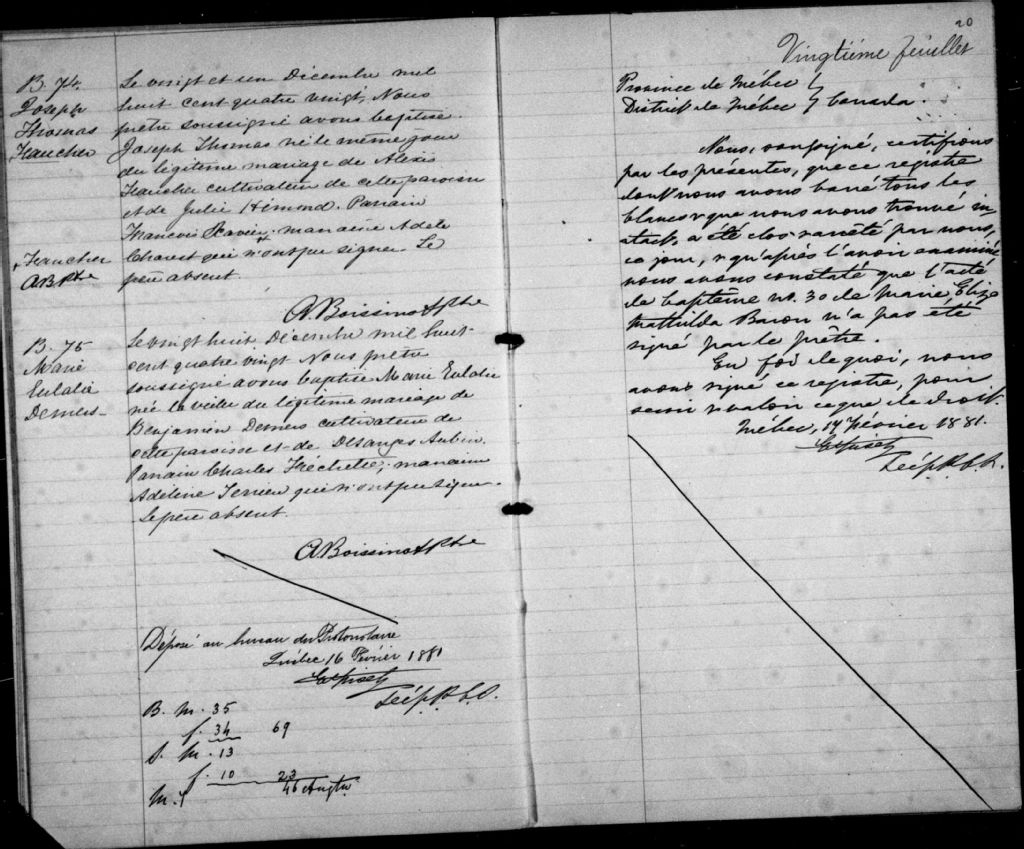 B. 74.
Joseph
Thomas
Faucher
Le vingt et un Décembre mil
huit cent quatre vingt, Nous
prêtre soussigné avons baptisé
Joseph Thomas né le même jour
du légitime mariage de Alexis
Faucher cultivateur de cette paroisse
et de Julie Hémond. Parrain
François Xavier marraine Adele
Charest qui n'ont pu signer. Le
père absent.
Faucher
ABPtre
A Boissinot Ptre
B. 75
Marie
Eulalie
Demers
Le vingt huit Décembre mil huit
cent quatre vingt Nous prêtre
soussigné avons baptisé Marie Eulalie
née la veille du légitime mariage de
Benjamin Demers cultivateur de
cette paroisse et de Desanges Aubin.
Parrain Charles Fréchette, marraine
Adéline Terrien qui n'ont pu signer.
Le père absent.
A Boissinot Ptre
Déposé au bureau du Protonotaire
Québec 16 Février 1881
Dép. P. C. S.
B. m. 35
f. 34 69
S. m. 13
f. 10 23
m.
20
Vingtième feuillet
Province de Québec }
District de Québec } Canada.
Nous, soussigné, certifions
par les présentes, que ce registre
dont nous avons barré tous les
blancs & que nous avons trouvé in-
tact, a été clos & arrêté par nous,
ce jour, & qu'après l'avoir examiné
nous avons constaté que l'acte
de baptême no. 30 de Marie, Eliza
Mathilda Baron n'a pas été
signé par le prêtre.
En foi de quoi, nous
avons signé ce registre, pour
servir & valoir ce que de droit.
Québec, 17 Février 1881.
Dép. P. C. S.